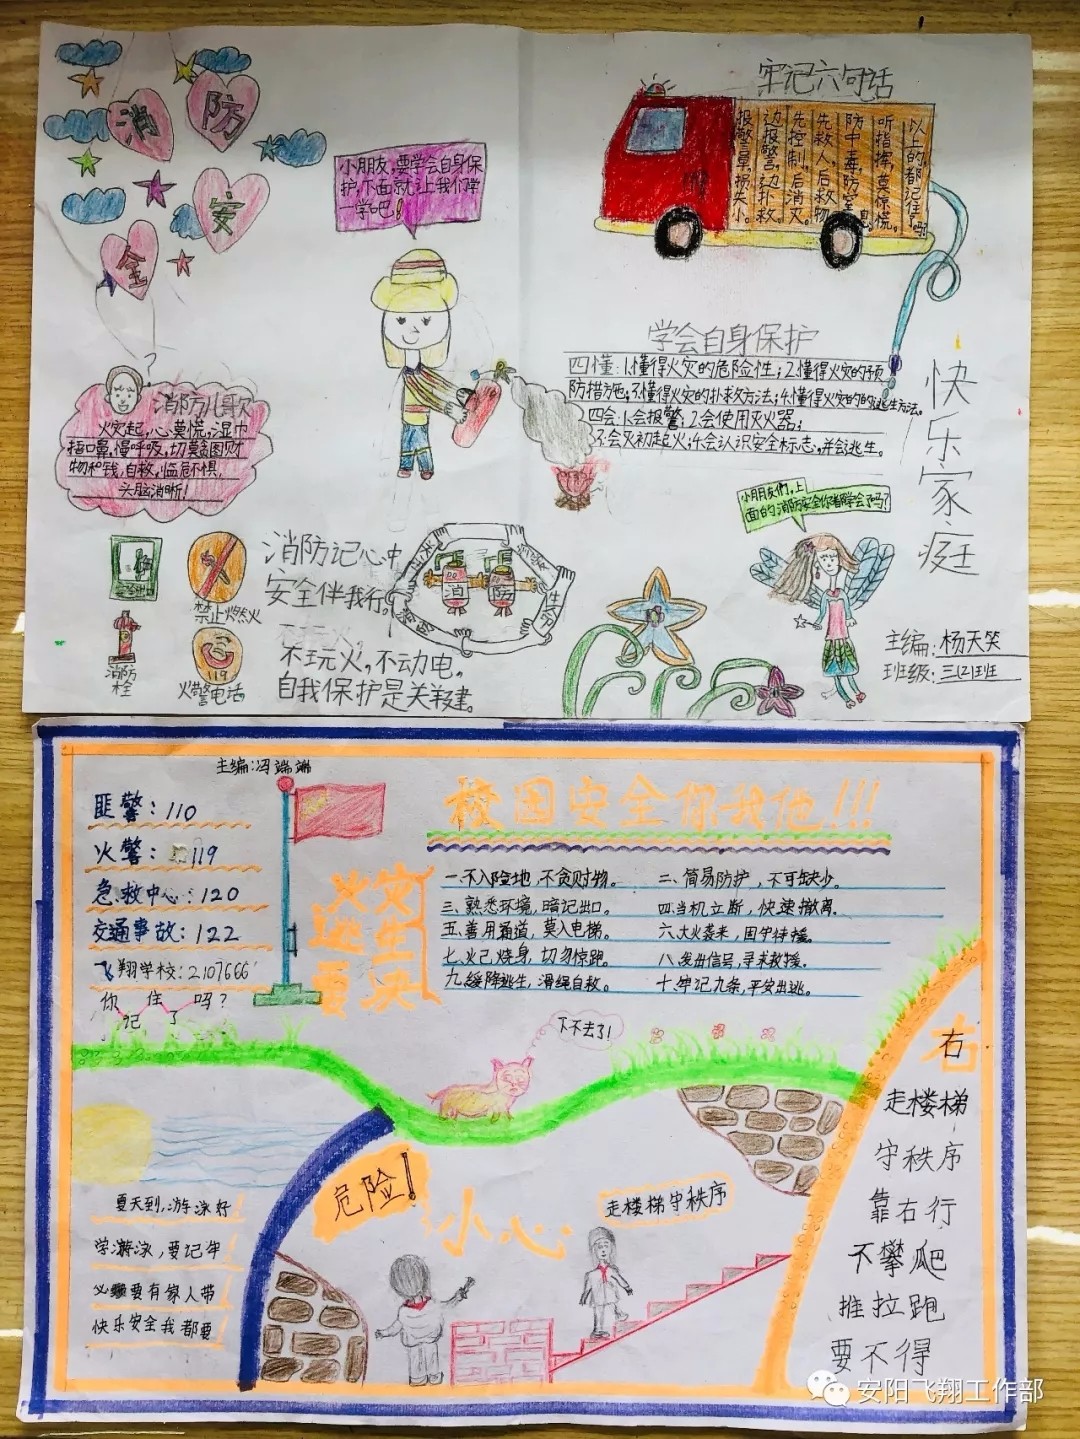 消防
安
全
小朋友,要学会自身保
护,下面就让我们学
一学吧!
牢记六句话
报警早,损失小。
边报警,边扑救。
先控制,后消灭。
先救人,后救物。
防中毒,防窒息。
听指挥,莫惊慌。
以上的都记住了吗?
学会自身保护
四懂:1.懂得火灾的危险性;2.懂得火灾的预
防措施;3.懂得火灾的扑救方法;4.懂得火灾的逃生方法。
四会:1.会报警;2.会使用灭火器;
3.会灭初起火;4.会认识安全标志,并会逃生。
快乐家庭
消防儿歌
火灾起,心莫慌,湿巾
捂口鼻,慢呼吸,切莫贪图财
物和钱,自救,临危不惧,
头脑清晰!
禁止燃火
消防
栓
119
火警电话
消防记心中
安全伴我行。
不玩火,不动电。
自我保护是关键。
消 防
小朋友们,上
面的消防安全你都学会了吗?
主编:杨天笑
班级:三(2)班
主编:冯端端
匪警:110
火警:119
急救中心:120
交通事故:122
飞翔学校:2107666
你记住了吗?
校园安全你我他!!!
火灾
逃生
要决
一.不入险地,不贪财物。
二、简易防护,不可缺少。
三、熟悉环境,暗记出口。
四.当机立断,快速撤离.
五、善用通道,莫入电梯。
六、大火袭来,固守待援。
七、火已烧身,切勿惊跑。
八、发出信号,寻求救援.
九、缓降逃生,滑绳自救。
十、牢记九条,平安出逃。
下不去了!
右
走楼梯
守秩序
靠右行
不攀爬
推拉跑
要不得
夏天到,游泳好
学游泳,要记牢
必须要有家人带
快乐安全我都要
危险!
小心
走楼梯守秩序
安阳飞翔工作部